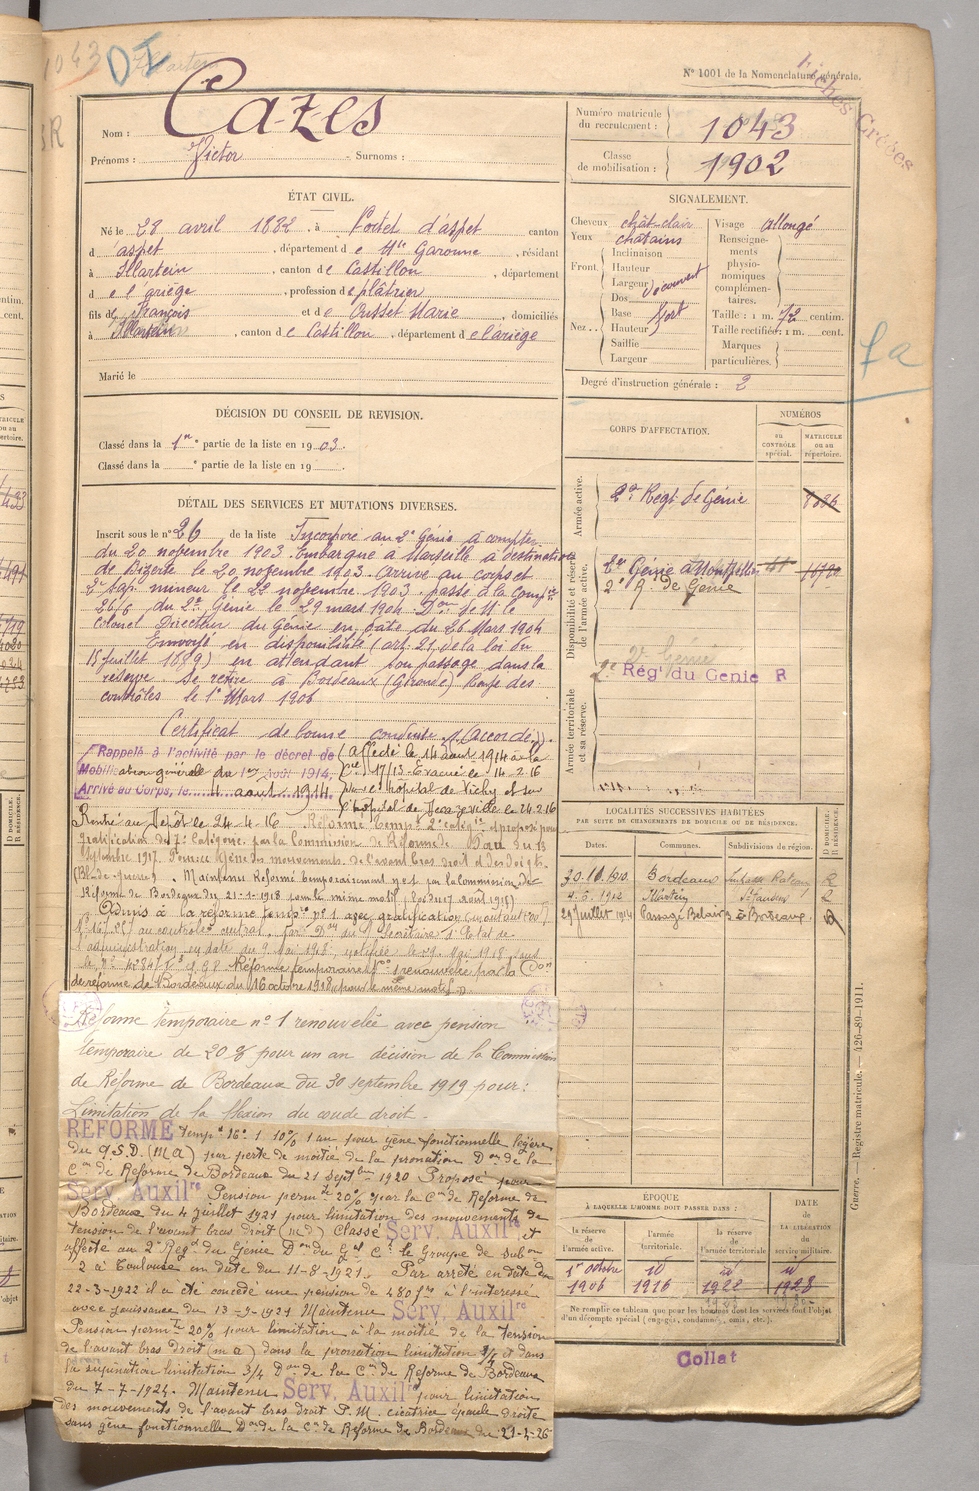 1043 DI
N° 1001 de la Nomenclature générale.
Fiches Créées
Nom : Cazes
Prénoms : Victor Surnoms :
Numéro matricule du recrutement : 1043
Classe de mobilisation : 1902
ÉTAT CIVIL.
Né le 28 avril 1882, à Portet d'aspet canton
d aspet, département de Hte Garonne, résidant
à Illartein, canton de Castillon, département
de l'ariège, profession de plâtrier
fils de François et de Ousset Marie, domiciliés
à Illartein, canton de Castillon, département de l'ariège
Marié le
SIGNALEMENT.
Cheveux chât-clair
Yeux châtains
Front
Inclinaison
Hauteur
Largeur découvert
Nez
Dos
Base fort
Hauteur
Saillie
Largeur
Visage allongé
Renseignements physionomiques complémentaires.
Taille : 1 m. 72 centim.
Taille rectifiée : 1 m. cent.
Marques particulières.
Degré d'instruction générale : 2
fa
DÉCISION DU CONSEIL DE REVISION.
Classé dans la 1re partie de la liste en 1903.
Classé dans la ° partie de la liste en 19
DÉTAIL DES SERVICES ET MUTATIONS DIVERSES.
Inscrit sous le n° 26 de la liste Incorporé au 2e Génie à compter
du 20 novembre 1903. Embarqué à Marseille à destination
de Bizerte le 20 novembre 1903. Arrivé au corps et
2e sap. mineur le 22 novembre 1903. passé à la Compie
26/6 du 2e Génie le 29 mars 1904 Don de M. le
Colonel Directeur du Génie en date du 26 Mars 1904
Envoyé en disponibilité (art. 21 de la loi du
15 juillet 1889) en attendant son passage dans la
réserve. Se retire à Bordeaux (Gironde) Rayé des
contrôles le 1er Mars 1906
Certificat de bonne conduite "Accordé".
Rappelé à l'activité par le décret de
Mobilisation générale du 1er Août 1914.
Arrivé au Corps, le 4 août 1914
(affecté le 14 août 1914 à la
Cie 17/13. Evacué le 14-2-16
sur l'hôpital de Vichy et sur
l'hôpital de Decazeville le 24.2.16
Rentré au Dépôt le 24-4-16 Réformé temp. 2e catégie et proposé pour
gratification de 7e Catégorie par la Commission de Réforme de Pau du 13
Septembre 1917. Pour : Gêne des mouvements de l'avant bras droit et des doigts.
(Bl. de guerre). Maintenu Réformé temporairement n°1 par la Commission de
Réforme de Bordeaux du 21-1-1918 pour le même motif
Admis à la réforme temp. n° 1 avec gratification
au contrôle central. par Don du Secrétaire d'Etat de
l'administration en date du 9 Mai 1918, notifiée le 29 Mai 1918 sous
Réforme temporaire n° 1 renouvelée par la Con
de réforme de Bordeaux du 16 octobre 1918 pour le même motif
Réforme temporaire n° 1 renouvelée avec pension
temporaire de 20 % pour un an décision de la Commission
de Réforme de Bordeaux du 30 septembre 1919 pour :
Limitation de la flexion du coude droit.
RÉFORME temp. N° 1 10% 1 an pour gêne fonctionnelle légère
du A.S.D. (M A) par perte de moitié de la pronation Don de la
Con de Réforme de Bordeaux du 21 Septbre 1920 Proposé pour
Serv. Auxilre Pension permte 20% par la Con de Réforme de
Bordeaux du 4 juillet 1921 pour limitation des mouvements de
tension de l'avant bras droit (m a) Classé Serv. Auxilre et
affecté au 2e Regt du Génie Don du Gal Ct le Groupe de subon
2 à Toulouse en date du 11-8-1921. Par arrêté en date du
22-3-1922 il a été concédé une pension de 480 frs à l'intéressé
avec jouissance du 13-9-1921 Maintenu Serv. Auxilre
Pension permte 20% pour limitation à la moitié de la tension
de l'avant bras droit (m a) dans la pronation limitation 3/4 et dans
la supination limitation 3/4 Don de la Con de Réforme de Bordeaux
du 7-7-1924. Maintenu Serv. Auxilre pour limitation
des mouvements de l'avant bras droit P. M. cicatrice épaule droite
sans gêne fonctionnelle Don de la Con de Réforme de Bordeaux du 21-4-26
CORPS D'AFFECTATION.
NUMÉROS
au CONTRÔLE spécial.
MATRICULE ou au répertoire.
Armée active.
2e Regt. de Génie
Disponibilité et réserve de l'armée active.
2e Génie à Montpellier
2e R. de Génie
2e Rég' du Génie R
Armée territoriale et sa réserve.
LOCALITÉS SUCCESSIVES HABITÉES
PAR SUITE DE CHANGEMENTS DE DOMICILE OU DE RÉSIDENCE.
Dates. Communes. Subdivisions du région. D DOMICILE. R RÉSIDENCE.
30.10.1910. Bordeaux R
4.6.1912 Illartein St Gaudens R
29 juillet 1914 Passage Belair 3 à Bordeaux
ÉPOQUE
À LAQUELLE L'HOMME DOIT PASSER DANS :
la réserve de l'armée active.
l'armée territoriale.
la réserve de l'armée territoriale
DATE de LA LIBÉRATION du service militaire.
1er octobre 1906
id 1916
id 1922
id 1928
Ne remplir ce tableau que pour les hommes dont les services font l'objet
d'un décompte spécial (engagés, condamnés, omis, etc.).
Collat
Guerre. — Registre matricule. — 426-89-1911.